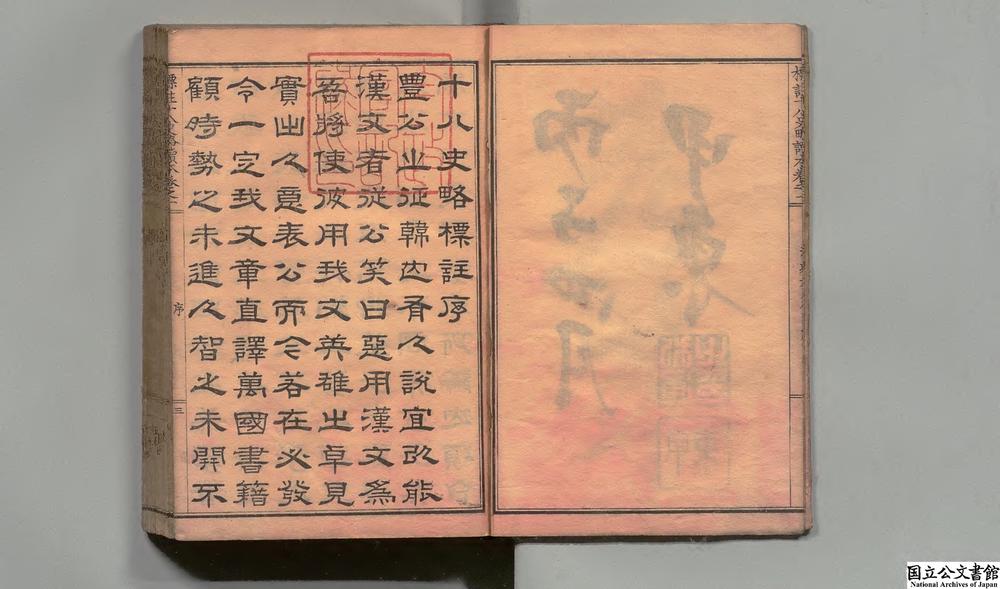 十八史略標註序
豐公之征韓也有人說宜以能
漢文者從公笑曰惡用漢文爲
吾將使彼用我文英雄之卓見
實出人意表公而今若在必發
令一定我文章直譯萬國書籍
顧時勢之未進人智之未開不
序
三
国立公文書館
National Archives of Japan